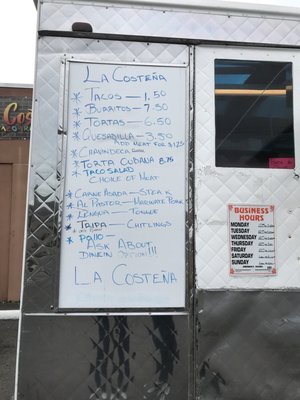 LA COSTEÑA
* TACOS — 1.50
* BURRITOS — 7.50
* TORTAS — 6.50
* QUESADILLA — 3.50
ADD MEAT FOR $1.25
* TORTA CUBANA 8.75
* TACO SALAD
CHOICE OF MEAT
* CARNE ASADA — STEAK
* AL PASTOR — MARINATE PORK
* LENGUA — TONGUE
* TRIPA — CHITLINGS
* POLLO —
ASK ABOUT
DINE IN OPTION!!!
LA COSTEÑA
BUSINESS HOURS
MONDAY
TUESDAY
WEDNESDAY
THURSDAY
FRIDAY
SATURDAY
SUNDAY